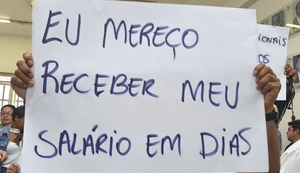 EU MEREÇO
RECEBER MEU
SALÁRIO EM DIAS
OS